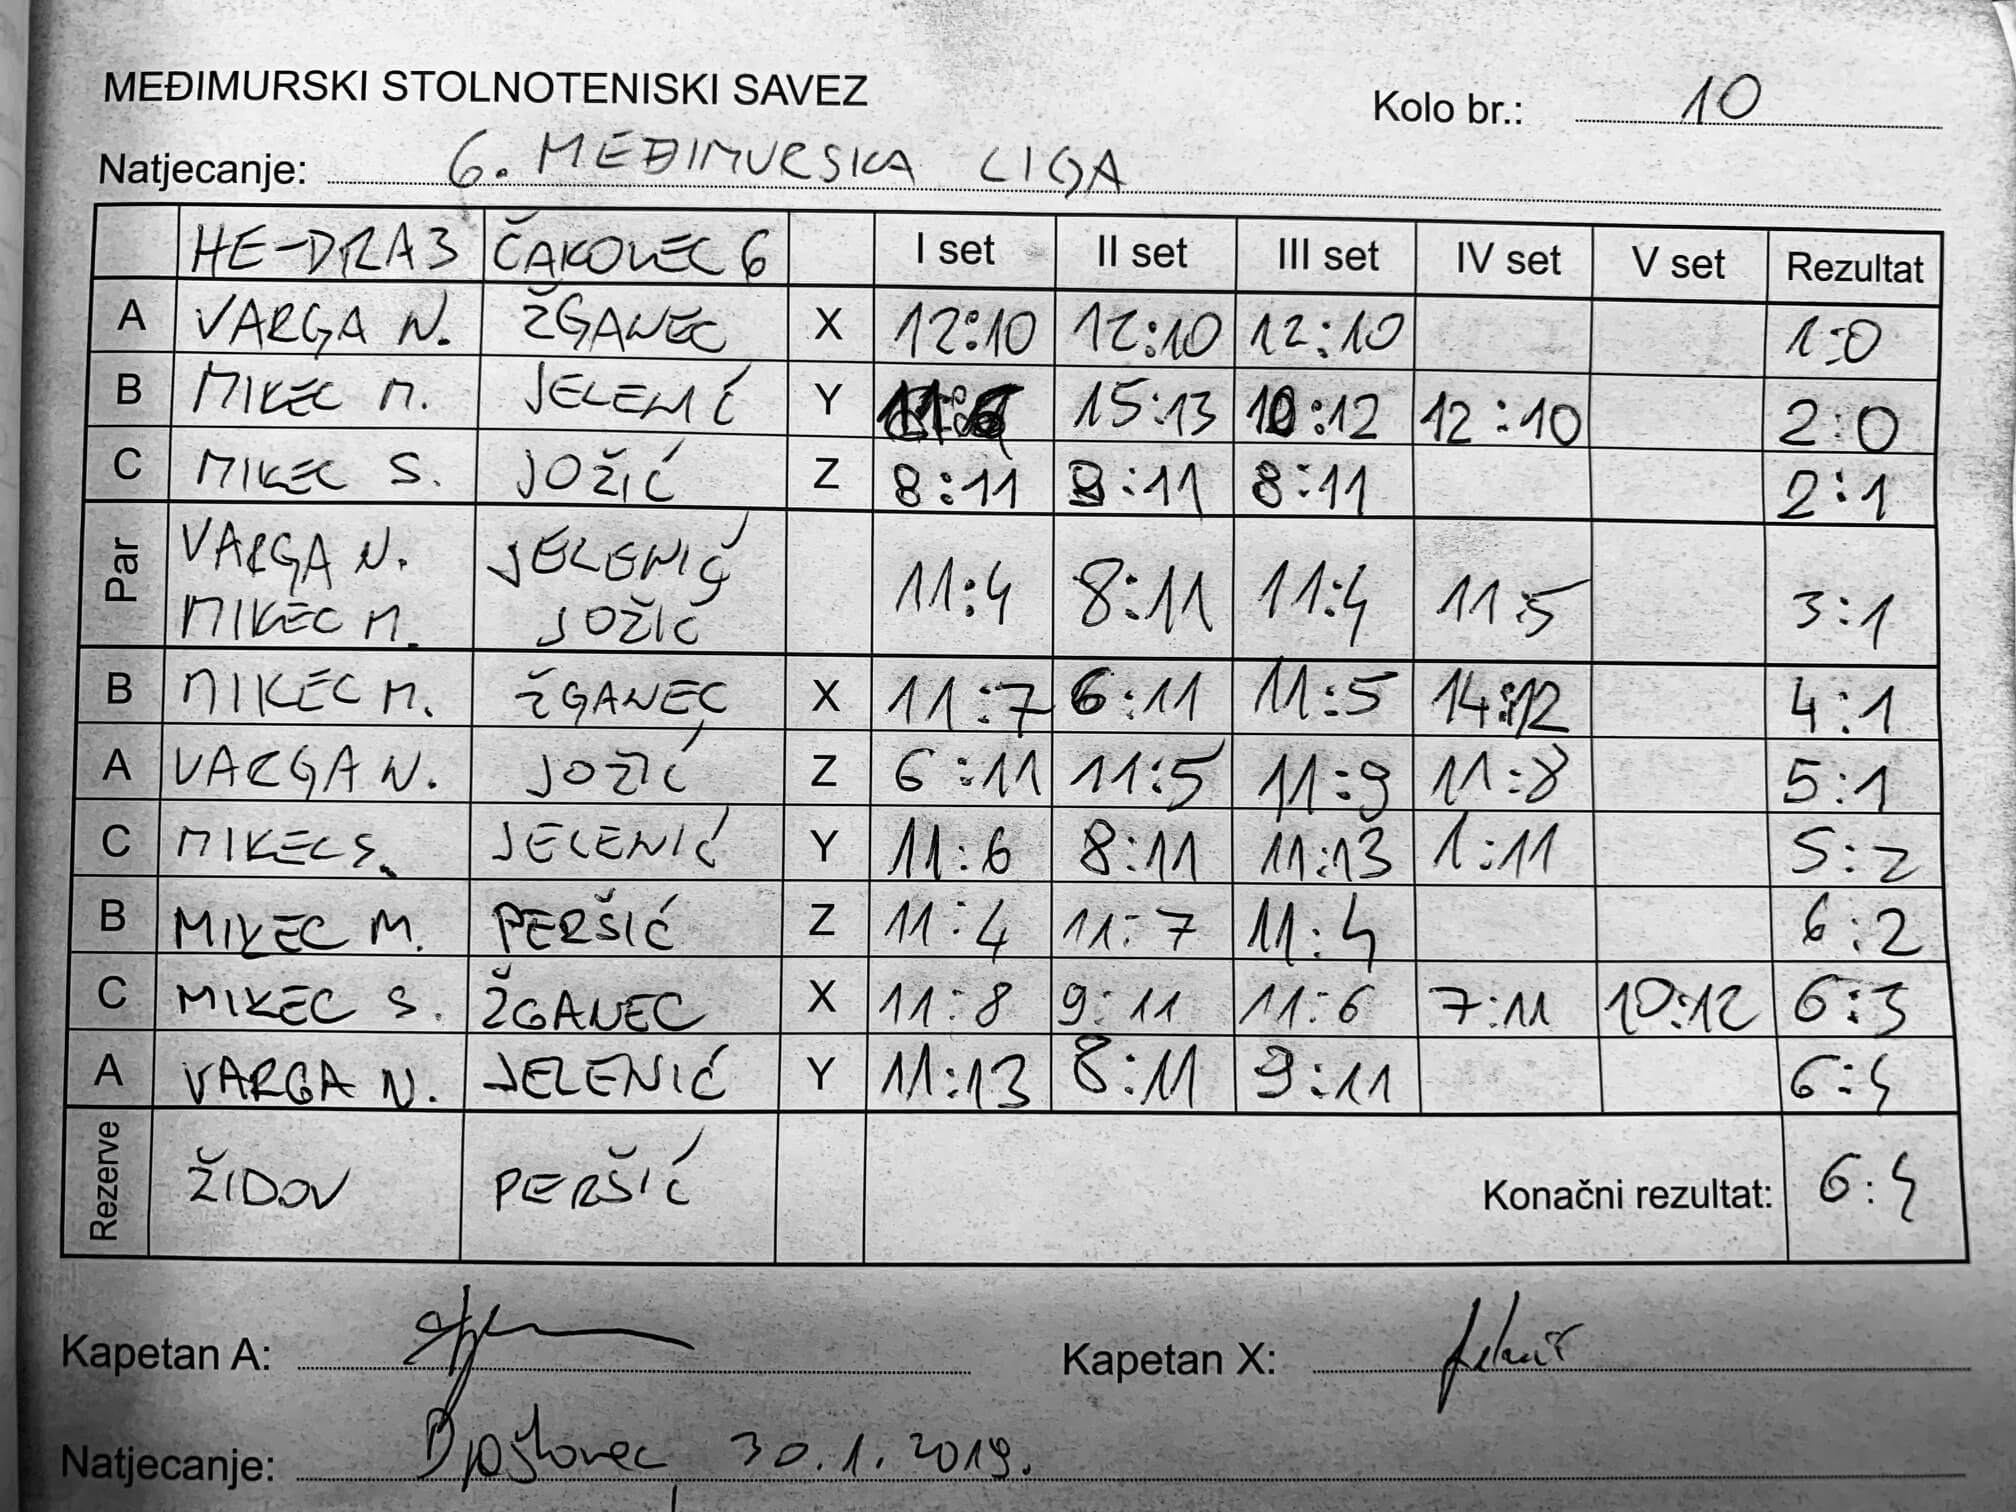 MEĐIMURSKI STOLNOTENISKI SAVEZ
Kolo br.: 10
Natjecanje: 6. MEĐIMURSKA LIGA
HE-DRA3 ČAKOVEC 6 I set II set III set IV set V set Rezultat
A VARGA N. ŽGANEC X 12:10 12:10 12:10 1:0
B MIKEC M. JELENIĆ Y 15:13 10:12 12:10 2:0
C MIKEC S. JOŽIĆ Z 8:11 8:11 8:11 2:1
Par VARGA N. JELENIĆ 11:4 8:11 11:4 11:5 3:1
MIKEC M. JOŽIĆ
B MIKEC M. ŽGANEC X 11:7 6:11 11:5 14:12 4:1
A VARGA N. JOŽIĆ Z 6:11 11:5 11:9 11:8 5:1
C MIKEC S. JELENIĆ Y 11:6 8:11 11:13 1:11 5:2
B MIKEC M. PERŠIĆ Z 11:4 11:7 11:4 6:2
C MIKEC S. ŽGANEC X 11:8 9:11 11:6 7:11 10:12 6:3
A VARGA N. JELENIĆ Y 11:13 8:11 9:11 6:4
Rezerve ŽIDOV PERŠIĆ Konačni rezultat: 6:4
Kapetan A: Kapetan X:
Natjecanje: 30.1.2019.